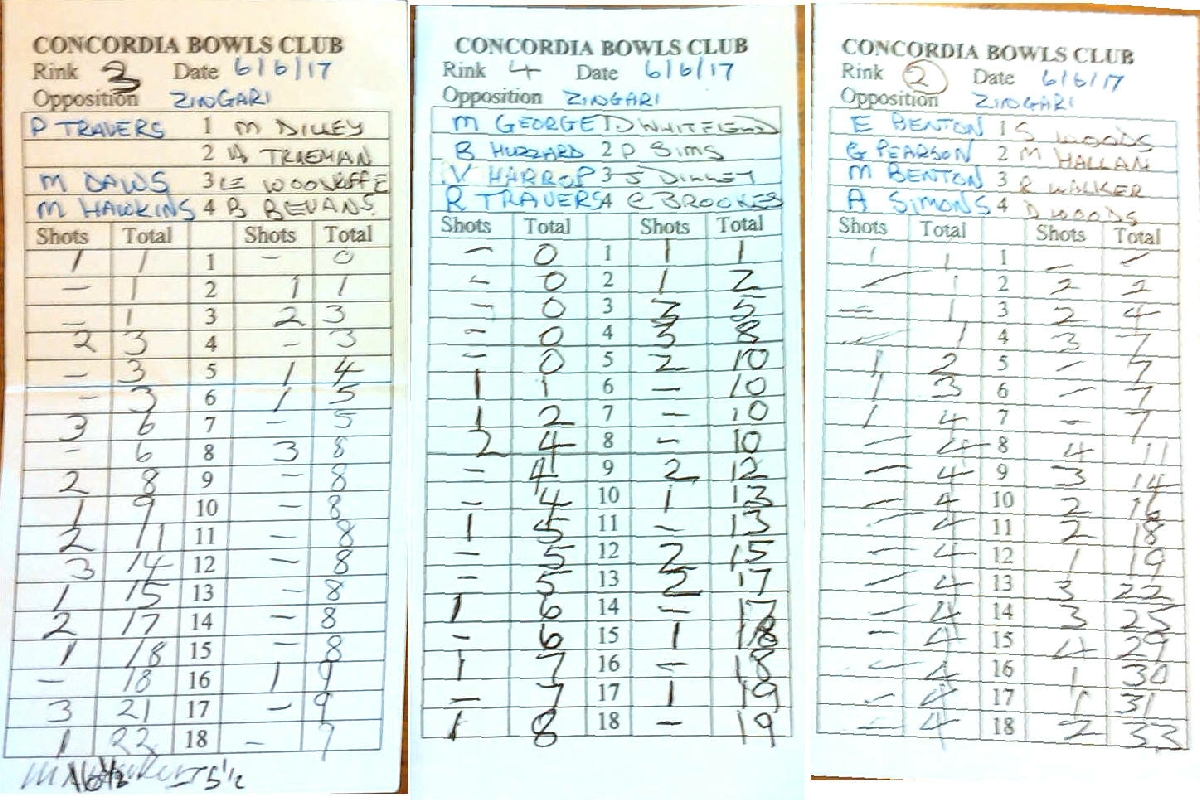 CONCORDIA BOWLS CLUB
Rink 3 Date 6/6/17
Opposition ZINGARI
P TRAVERS 1 M DILLEY
2 A TRUEMAN
M DAWS 3 E WOODLIFFE
M HAWKINS 4 B BEVANS
Shots Total Shots Total
1 1 1 - 0
- 1 2 1 1
- 1 3 2 3
2 3 4 - 3
- 3 5 1 4
- 3 6 1 5
3 6 7 - 5
- 6 8 3 8
2 8 9 - 8
1 9 10 - 8
2 11 11 - 8
3 14 12 - 8
1 15 13 - 8
2 17 14 - 8
1 18 15 - 8
- 18 16 1 9
3 21 17 - 9
1 22 18 - 9
5 1/2
CONCORDIA BOWLS CLUB
Rink 4 Date 6/6/17
Opposition ZINGARI
M GEORGE 1 D WHITFIELD
B HUZZARD 2 P SIMS
V HARROP 3 J DILLEY
R TRAVERS 4 C BROOKES
Shots Total Shots Total
- 0 1 1 1
- 0 2 1 2
- 0 3 3 5
- 0 4 3 8
- 0 5 2 10
1 1 6 - 10
1 2 7 - 10
2 4 8 - 10
- 4 9 2 12
- 4 10 1 13
1 5 11 - 13
- 5 12 2 15
- 5 13 2 17
1 6 14 - 17
- 6 15 1 18
1 7 16 - 18
- 7 17 1 19
1 8 18 - 19
CONCORDIA BOWLS CLUB
Rink 2 Date 6/6/17
Opposition ZINGARI
E BENTON 1 S WOODS
G PEARSON 2 M HALLAM
M BENTON 3 R WALKER
A SIMONS 4 D WOODS
Shots Total Shots Total
1 1 1 - -
- 1 2 2 2
= 1 3 2 4
- 1 4 3 7
1 2 5 - 7
1 3 6 - 7
1 4 7 - 7
- 4 8 4 11
- 4 9 3 14
- 4 10 2 16
- 4 11 2 18
- 4 12 1 19
- 4 13 3 22
- 4 14 3 25
- 4 15 4 29
- 4 16 1 30
- 4 17 1 31
- 4 18 2 33